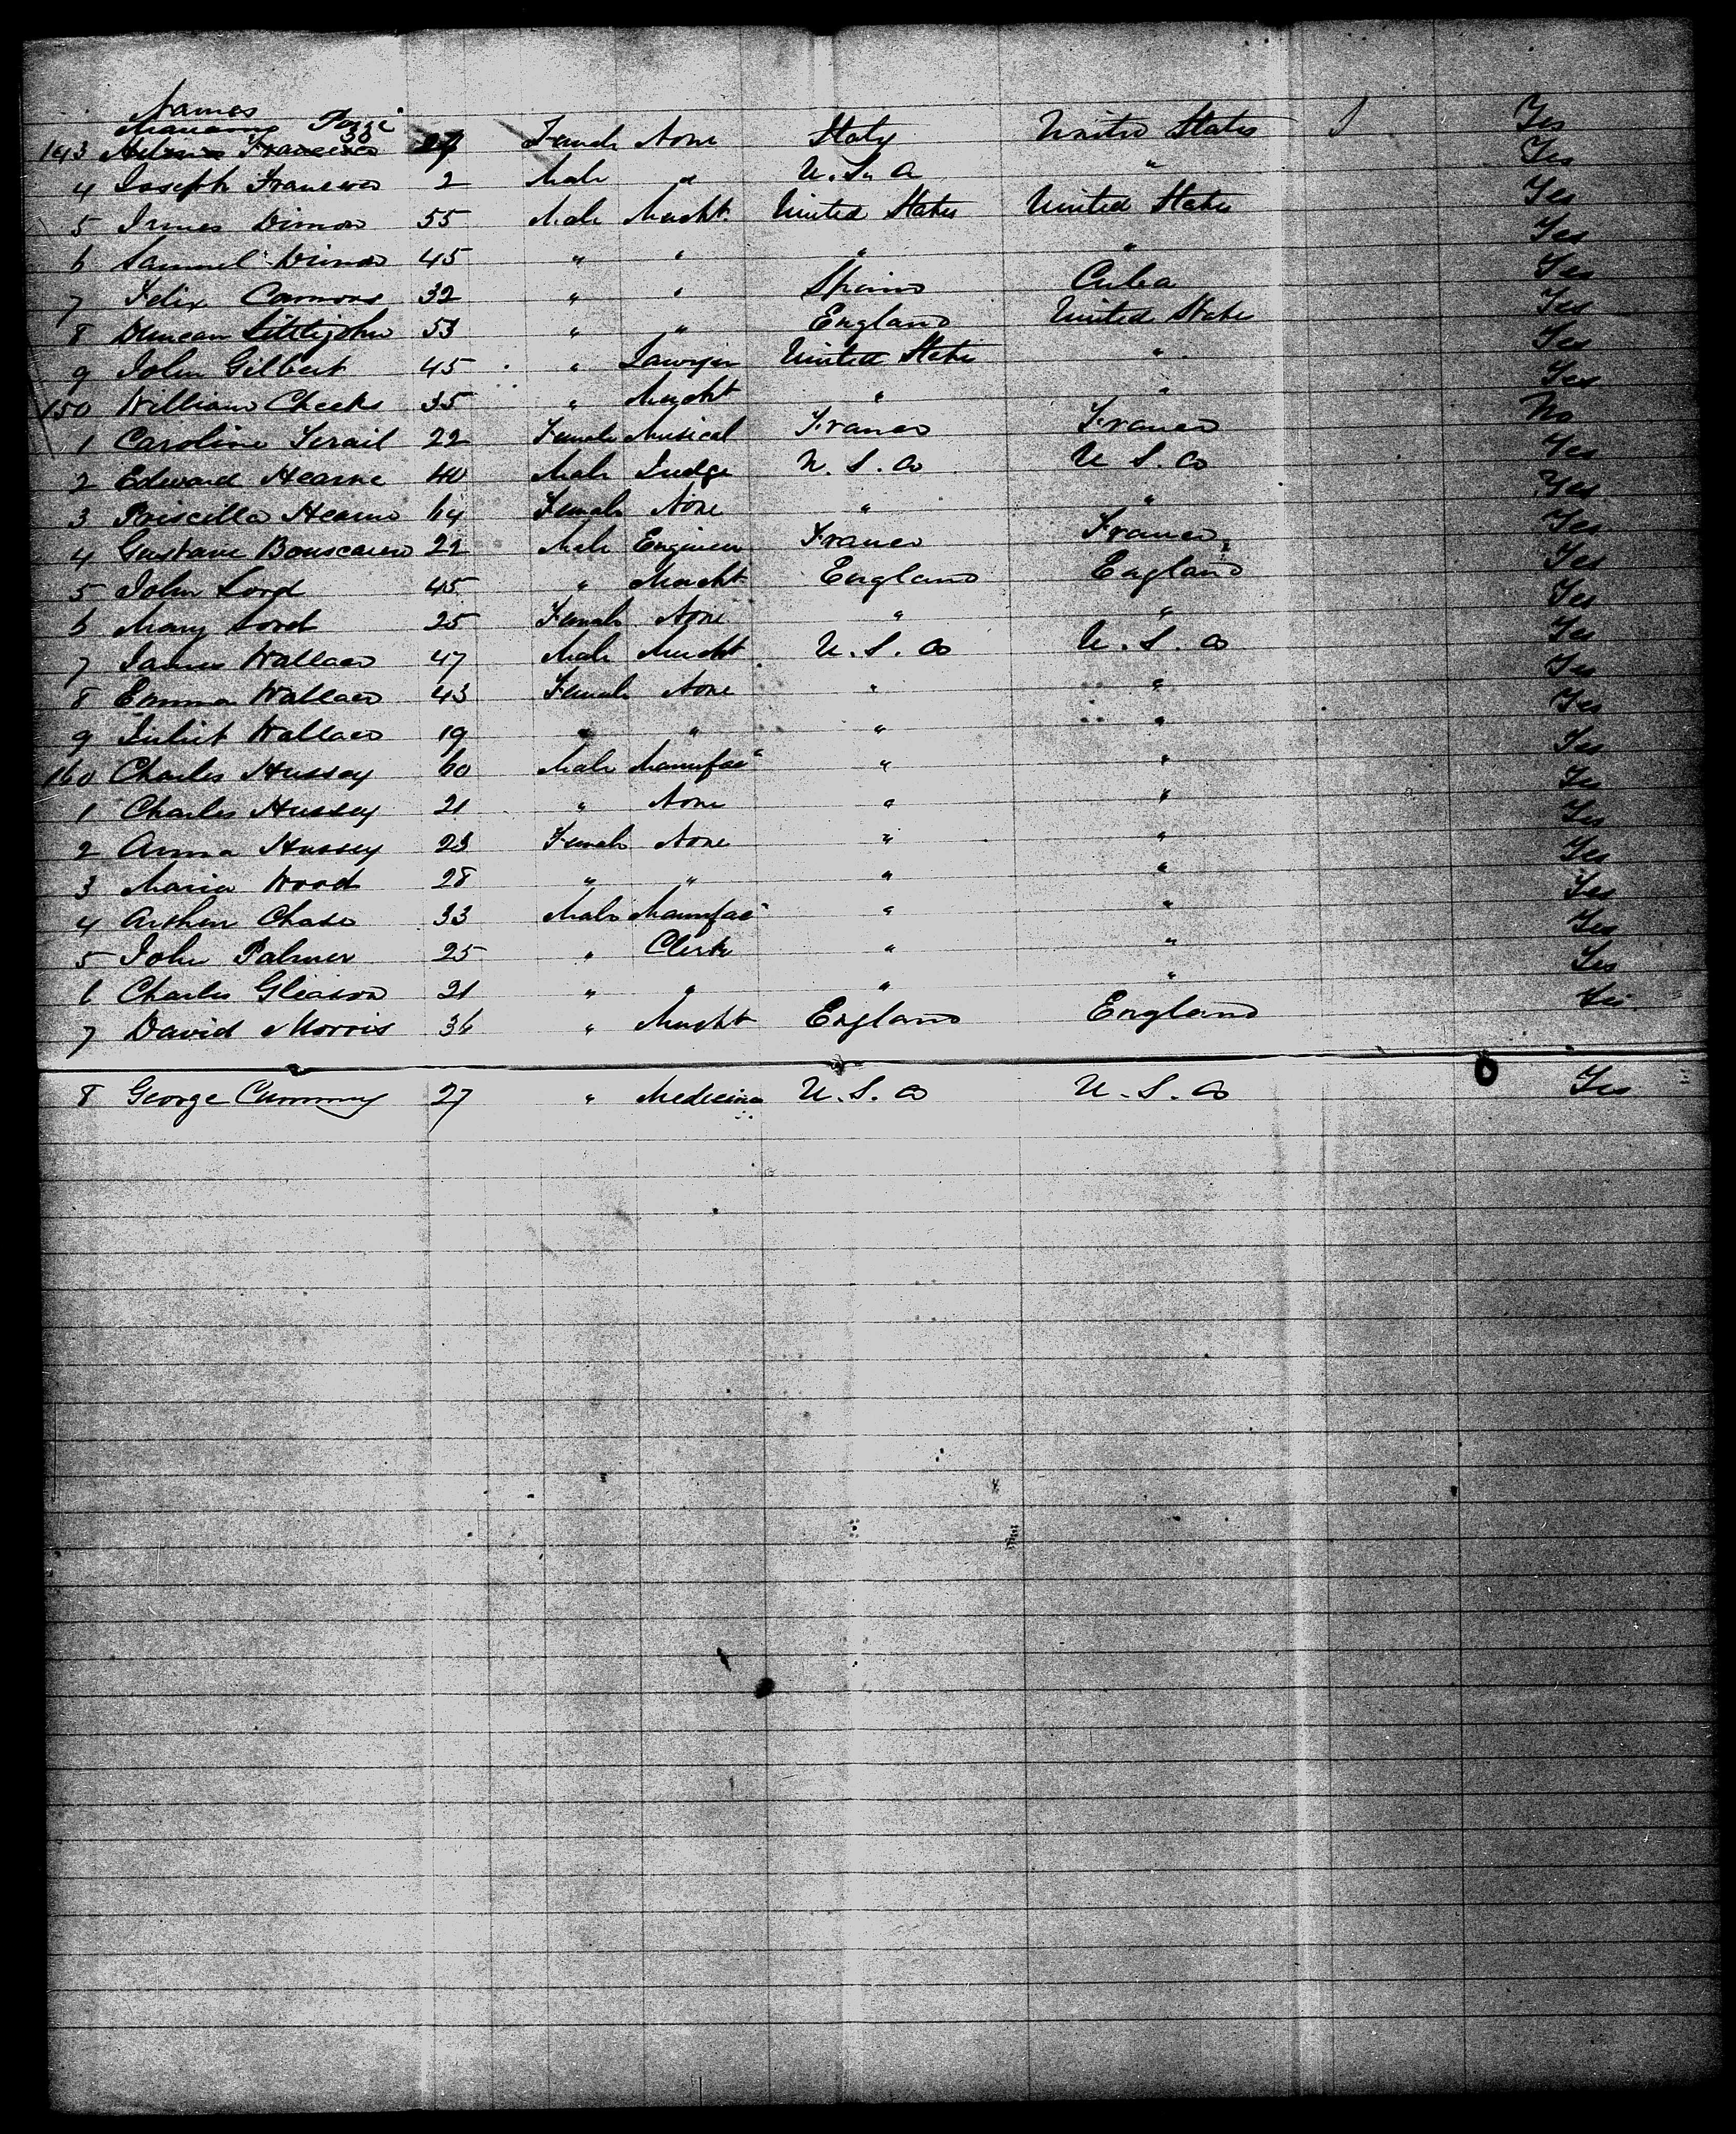 Names
Pozzi
143 Francisco 27 Female None Italy United States Yes
4 Joseph Francisco 2 Male " U.S.A " Yes
5 Dimon 55 Male Mercht. United States United States Yes
6 Samuel Dimon 45 " " " " Yes
7 Felix 32 " " Spain Cuba Yes
8 Duncan Littlejohn 53 " " England United States Yes
9 John Gilbert 45 " Lawyer United States " Yes
150 William Cheeks 35 " Mercht " " Yes
1 Caroline 22 Female Musical France France No
2 Edward Hearne 40 Male Judge U.S.A U.S.A Yes
3 Priscilla Hearne 64 Female None " " Yes
4 Gustave Bouscaren 22 Male Engineer France France Yes
5 John Lord 45 " Mercht England England Yes
6 Mary Lord 25 Female None " " Yes
7 James Wallace 47 Male Mercht. U.S.A U.S.A Yes
8 Emma Wallace 43 Female None " " Yes
9 Juliet Wallace 19 " " " " Yes
160 Charles Hussey 60 Male Manufac " " Yes
1 Charles Hussey 21 " None " " Yes
2 Anna Hussey 23 Female None " " Yes
3 Maria Wood 28 " " " " Yes
4 Arthur Chase 33 Male Manufac " " Yes
5 John Palmer 25 " Clerk " " Yes
6 Charles Gleason 21 " " " " Yes
7 David Morris 36 " Mercht England England Yes
8 George 27 " Medicine U.S.A U.S.A Yes